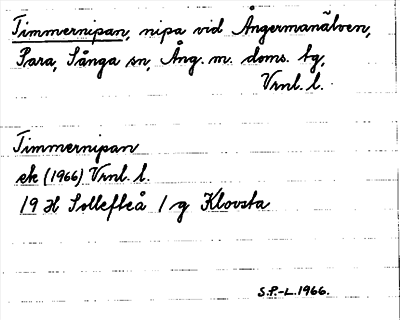 Timmernipan, nipa vid Ångermanälven,
Para, Sånga sn, Ång. m. doms. bg,
Vrnl. l.
Timmernipan
ek (1966) Vrnl. l.
19 H Sollefteå 1 g Klovsta
S.P.-L. 1966.